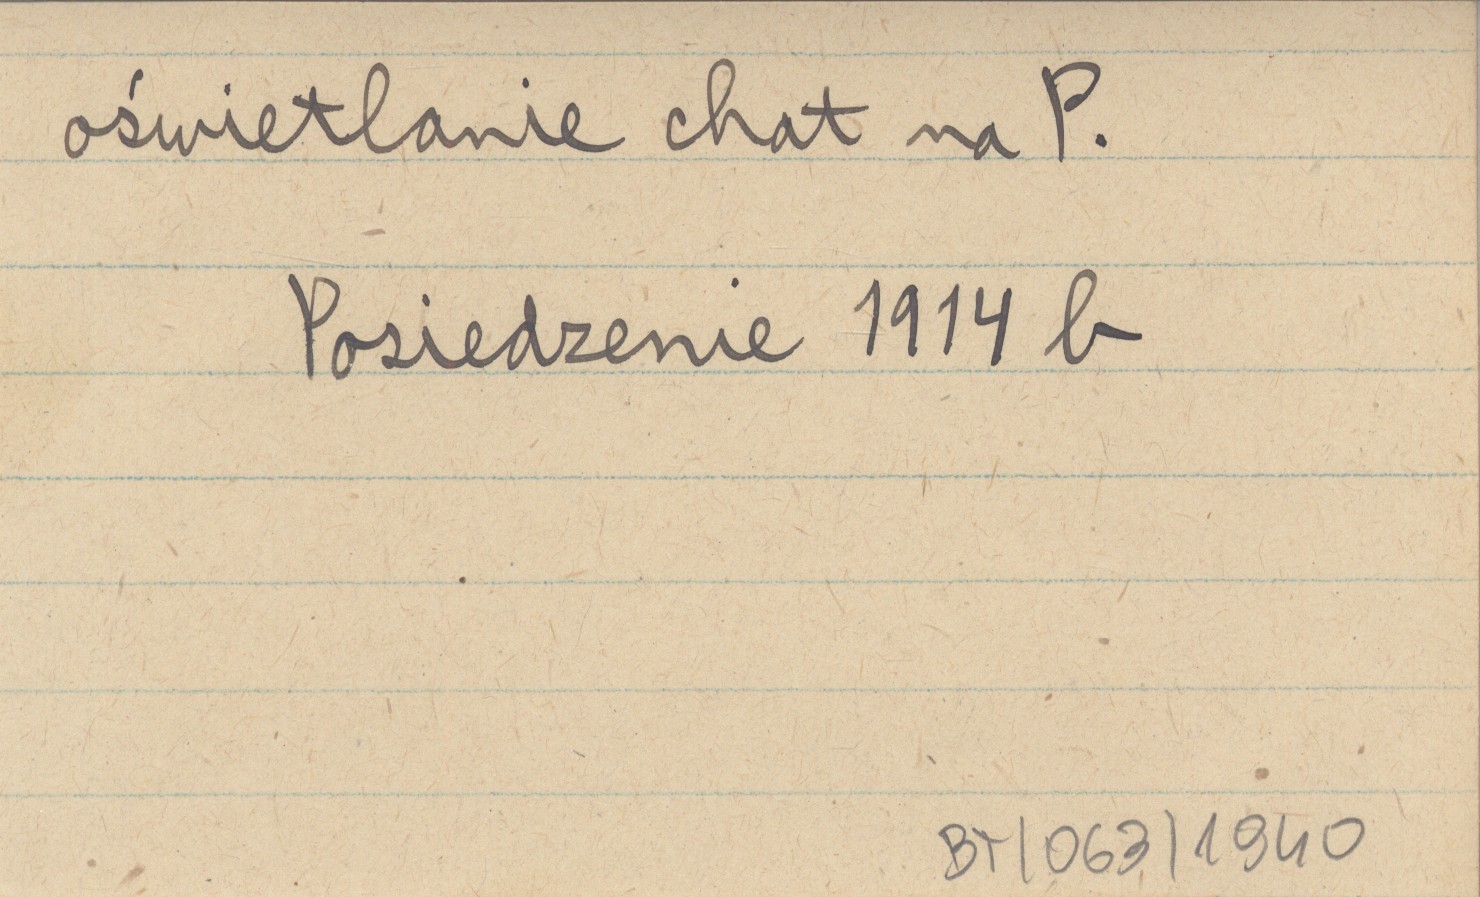 oświetlanie chat na P.
Posiedzenie 1914 b
BT/063/1940